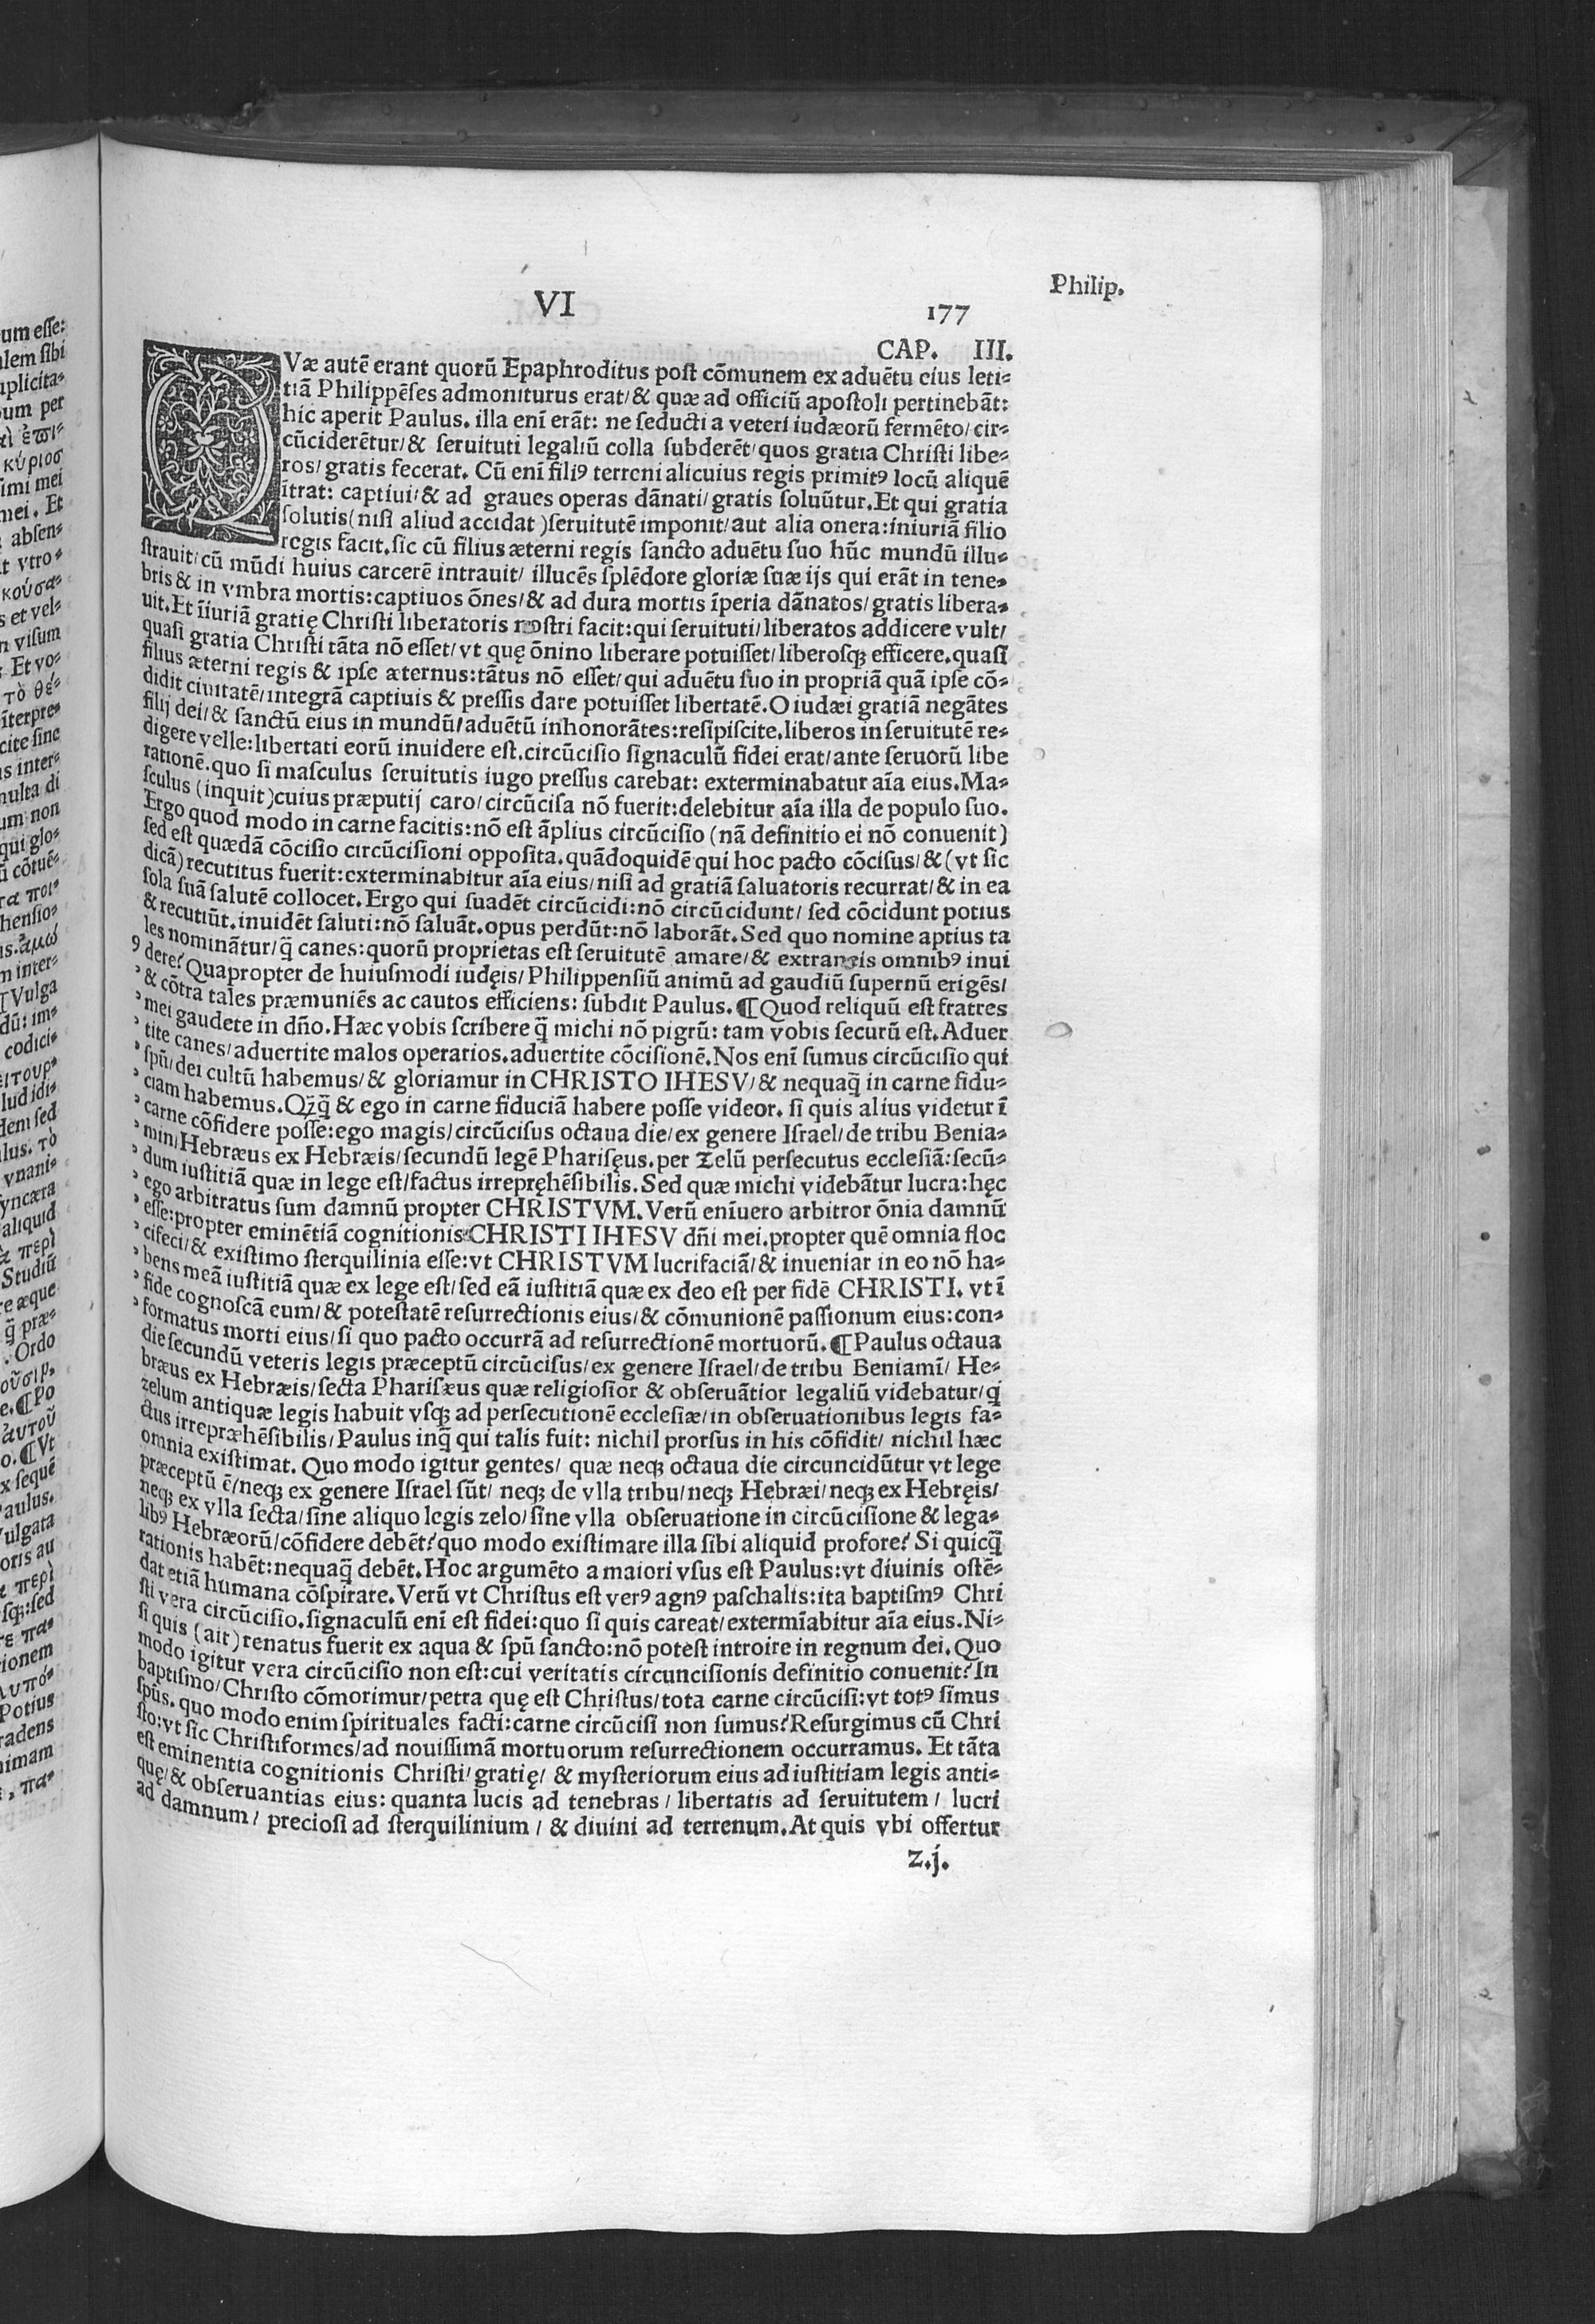 VI
177
Philip.
CAP. III.
QVæ autē erant quorū Epaphroditus poſt cōmunem ex aduētu eius leti⸗
tiā Philippēſes admoniturus erat/ & quæ ad officiū apoſtoli pertinebāt:
hic aperit Paulus. illa eni̅ erāt: ne ſeducti a veteri iudæorū fermēto/ cir⸗
cūciderētur/ & ſeruituti legaliū colla ſubderēt/ quos gratia Chriſti libe⸗
ros/ gratis fecerat. Cū eni̅ filiꝰ terreni alicuius regis primitꝰ locū aliquē
i̅trat: captiui/ & ad graues operas dānati/ gratis ſoluūtur. Et qui gratia
ſolutis (niſi aliud accidat) ſeruitutē imponit/ aut alia onera: iniuriā filio
regis facit. ſic cū filius æterni regis ſancto aduētu ſuo hūc mundū illu⸗
ſtrauit/ cū mūdi huius carcerē intrauit/ illucēs ſplēdore gloriæ ſuæ ijs qui erāt in tene⸗
bris & in vmbra mortis: captiuos ōnes/ & ad dura mortis i̅peria dānatos/ gratis libera⸗
uit. Et i̅iuriā gratię Chriſti liberatoris noſtri facit: qui ſeruituti/ liberatos addicere vult/
quaſi gratia Chriſti tāta nō eſſet/ vt quę ōnino liberare potuiſſet/ liberoſqꝫ efficere. quaſi
filius æterni regis & ipſe æternus: tātus nō eſſet/ qui aduētu ſuo in propriā quā ipſe cō⸗
didit ciuitatē/ integrā captiuis & preſſis dare potuiſſet libertatē. O iudæi gratiā negātes
filij dei/ & ſanctū eius in mundū/ aduētū inhonorātes: reſipiſcite. liberos in ſeruitutē re⸗
digere velle: libertati eorū inuidere eſt. circūciſio ſignaculū fidei erat/ ante ſeruorū libe
rationē. quo ſi maſculus ſeruitutis iugo preſſus carebat: exterminabatur aīa eius. Ma⸗
ſculus (inquit) cuius præputij caro/ circūciſa nō fuerit: delebitur aīa illa de populo ſuo.
Ergo quod modo in carne facitis: nō eſt āplius circūciſio (nā definitio ei nō conuenit)
ſed eſt quædā cōciſio circūciſioni oppoſita. quādoquidē qui hoc pacto cōciſus/ & (vt ſic
dicā) recutitus fuerit: exterminabitur aīa eius/ niſi ad gratiā ſaluatoris recurrat/ & in ea
ſola ſuā ſalutē collocet. Ergo qui ſuadēt circūcidi: nō circūcidunt/ ſed cōcidunt potius
& recutiūt. inuidēt ſaluti: nō ſaluāt. opus perdūt: nō laborāt. Sed quo nomine aptius ta
les nominātur/ q̄ canes: quorū proprietas eſt ſeruitutē amare/ & extraneis omnibꝰ inui
dere? Quapropter de huiuſmodi iudęis/ Philippenſiū animū ad gaudiū ſupernū erigēs/
& cōtra tales præmuniēs ac cautos efficiens: ſubdit Paulus. ¶ Quod reliquū eſt fratres
mei gaudete in dn̄o. Hæc vobis ſcribere q̄ michi nō pigrū: tam vobis ſecurū eſt. Aduer
tite canes/ aduertite malos operarios. aduertite cōciſionē. Nos eni̅ ſumus circūciſio qui
ſpū/ dei cultū habemus/ & gloriamur in CHRISTO IHESV/ & nequaq̄ in carne fidu⸗
ciam habemus. Qꝫq̄ & ego in carne fiduciā habere poſſe videor. ſi quis alius videtur i̅
carne cōfidere poſſe: ego magis/ circūciſus octaua die/ ex genere Iſrael/ de tribu Benia⸗
min/ Hebræus ex Hebræis/ ſecundū legē Phariſęus. per zelū perſecutus eccleſiā: ſecū⸗
dum iuſtitiā quæ in lege eſt/ factus irrepręhēſibilis. Sed quæ michi videbātur lucra: hęc
ego arbitratus ſum damnū propter CHRISTVM. Verū eni̅uero arbitror ōnia damnū
eſſe: propter eminētiā cognitionis CHRISTI IHESV dn̄i mei. propter quē omnia floc
cifeci/ & exiſtimo ſterquilinia eſſe: vt CHRISTVM lucrifaciā/ & inueniar in eo nō ha⸗
bens meā iuſtitiā quæ ex lege eſt/ ſed eā iuſtitiā quæ ex deo eſt per fidē CHRISTI. vt i̅
fide cognoſcā eum/ & poteſtatē reſurrectionis eius/ & cōmunionē paſſionum eius: con⸗
formatus morti eius/ ſi quo pacto occurrā ad reſurrectionē mortuorū. ¶ Paulus octaua
die ſecundū veteris legis præceptū circūciſus/ ex genere Iſrael/ de tribu Beniami̅/ He⸗
bræus ex Hebræis/ ſecta Phariſæus quæ religioſior & obſeruātior legaliū videbatur/ q̇
zelum antiquæ legis habuit vſqꝫ ad perſecutionē eccleſiæ/ in obſeruationibus legis fa⸗
ctus irrepræhēſibilis/ Paulus inq̄ qui talis fuit: nichil prorſus in his cōfidit/ nichil hæc
omnia exiſtimat. Quo modo igitur gentes/ quæ neqꝫ octaua die circuncidūtur vt lege
præceptū ē/ neqꝫ ex genere Iſrael ſūt/ neqꝫ de vlla tribu/ neqꝫ Hebræi/ neqꝫ ex Hebręis/
neqꝫ ex vlla ſecta/ ſine aliquo legis zelo/ ſine vlla obſeruatione in circūciſione & lega⸗
libꝰ Hebræorū/ cōfidere debēt? quo modo exiſtimare illa ſibi aliquid profore? Si quicq̄
rationis habēt: nequaq̄ debēt. Hoc argumēto a maiori vſus eſt Paulus: vt diuinis oſtē⸗
dat etiā humana cōſpirare. Verū vt Chriſtus eſt verꝰ agnꝰ paſchalis: ita baptiſmꝰ Chri
ſti vera circūciſio. ſignaculū eni̅ eſt fidei: quo ſi quis careat/ extermi̅abitur aīa eius. Ni⸗
ſi quis (ait) renatus fuerit ex aqua & ſpū ſancto: nō poteſt introire in regnum dei. Quo
modo igitur vera circūciſio non eſt: cui veritatis circunciſionis definitio conuenit? In
baptiſmo/ Chriſto cōmorimur/ petra quę eſt Chriſtus/ tota carne circūciſi: vt totꝰ ſimus
ſpūs. quo modo enim ſpirituales facti: carne circūciſi non ſumus? Reſurgimus cū Chri
ſto: vt ſic Chriſtiformes/ ad nouiſſimā mortuorum reſurrectionem occurramus. Et tāta
eſt eminentia cognitionis Chriſti/ gratię/ & myſteriorum eius ad iuſtitiam legis anti⸗
quę/ & obſeruantias eius: quanta lucis ad tenebras/ libertatis ad ſeruitutem/ lucri
ad damnum/ precioſi ad ſterquilinium/ & diuini ad terrenum. At quis vbi offertur
z.j.